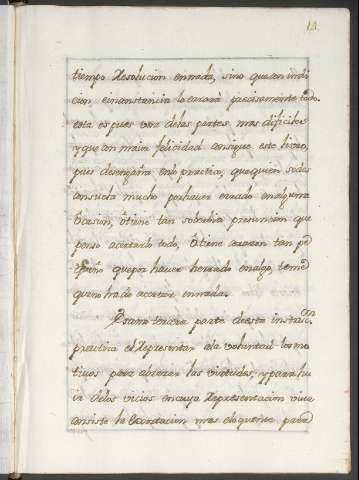 13.
tiempo Resolucion enmada, sino que en indi
cion, circunstancia
esta es pues una delas partes mas dificiles
y que con maior felicidad consigue este lisao,
pues desengaña enla practica, que quien sedes
consuela mucho por haver errado en alguna
Ocasion, ò tiene tan soberbia presuncion que
penso acertarlo todo, ò tiene corazon tan pe
queño que por haver herrado en algo, teme
que no ha de acertar en nada.
Es una tercera parte de esta instrucon.
practica el Representar ala voluntad los mo
tivos para abrazar las virtudes, y para hu
ir delos vicios en cuya Representacion viva
consiste la Exortacion mas eloquente, para